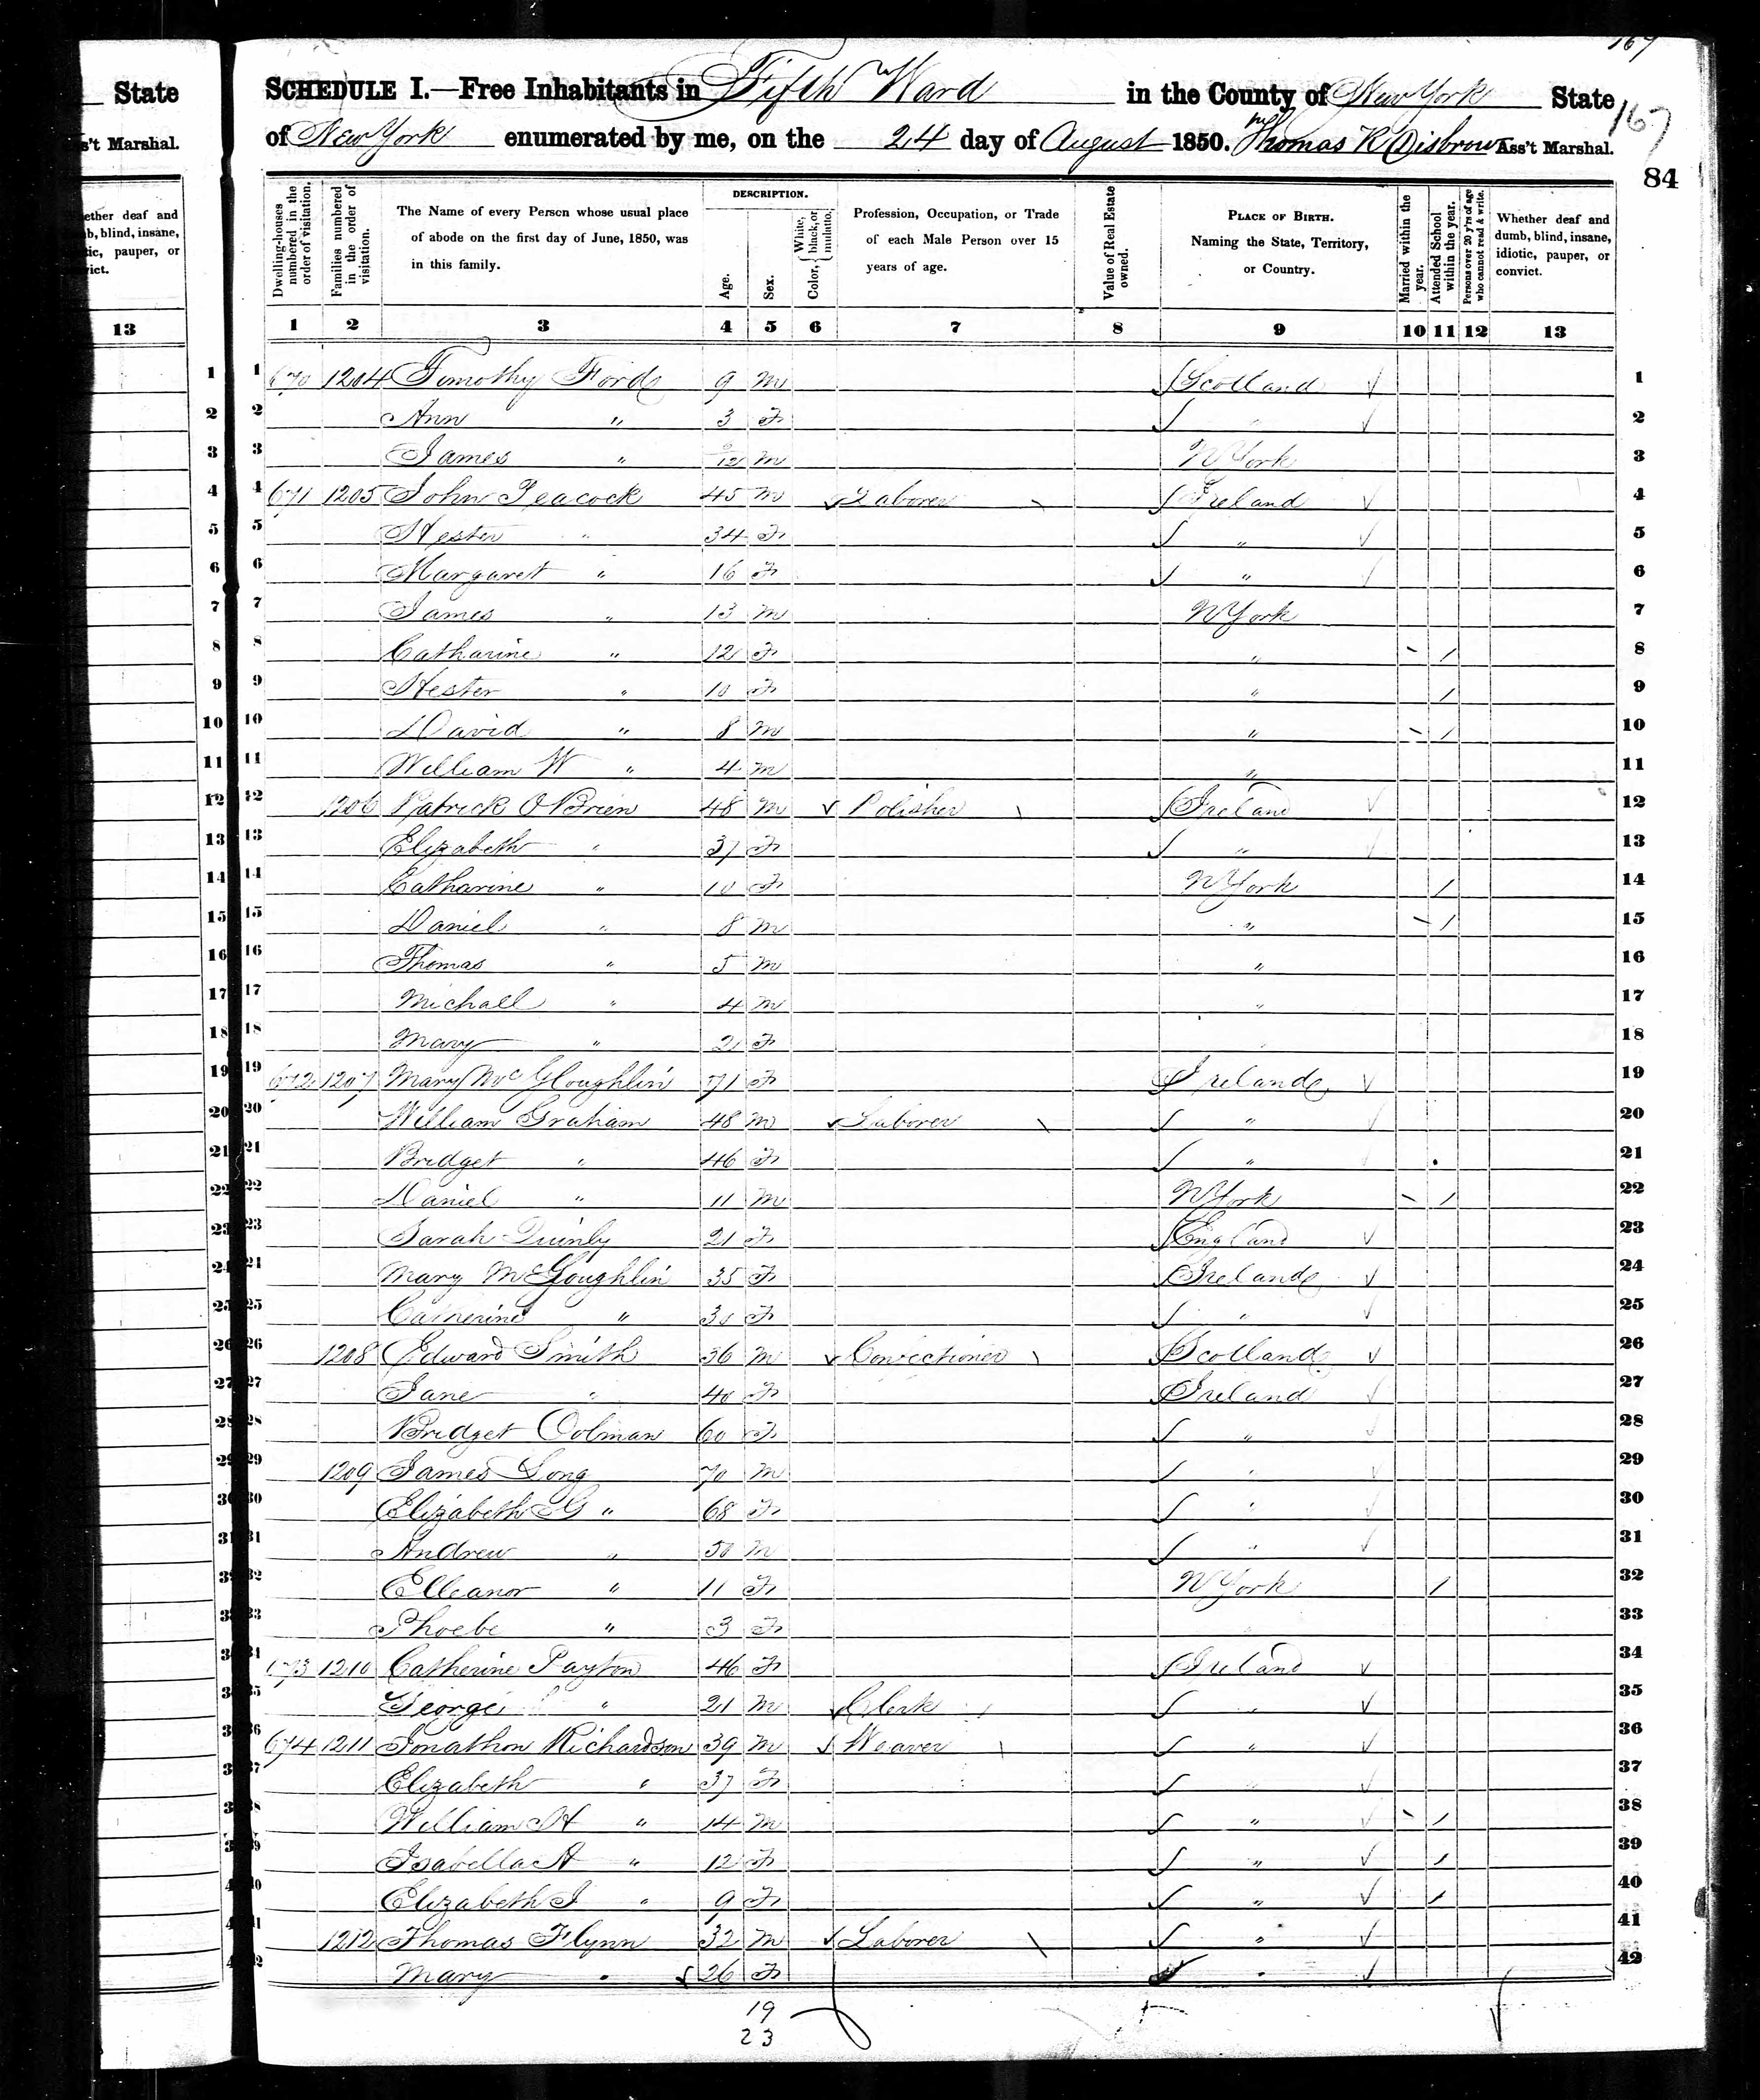 167
State
SCHEDULE I.—Free Inhabitants in Fifth Ward in the County of New York State
167
's't Marshal.
of New York enumerated by me, on the 24 day of August 1850. Thomas R Disbrow Ass't Marshal.
84
DESCRIPTION.
Dwelling-houses numbered in the order of visitation.
Families numbered in the order of visitation.
The Name of every Person whose usual place of abode on the first day of June, 1850, was in this family.
Age.
Sex.
Color, { White, black, or mulatto.
Profession, Occupation, or Trade of each Male Person over 15 years of age.
Value of Real Estate owned.
PLACE OF BIRTH. Naming the State, Territory, or Country.
Married within the year.
Attended School within the year.
Persons over 20 y'rs of age who cannot read & write.
Whether deaf and dumb, blind, insane, idiotic, pauper, or convict.
13 1 2 3 4 5 6 7 8 9 10 11 12 13
1 1 670 1204 Timothy Ford 9 M Scotland 1
2 2 Ann " 3 F " 2
3 3 James " /12 M N York 3
4 4 671 1205 John Peacock 45 M Laborer Ireland 4
5 5 Hester " 34 F " 5
6 6 Margaret " 16 F " 6
7 7 James " 13 M N York 7
8 8 Catharine " 12 F " 1 8
9 9 Hester " 10 F " 1 9
10 10 David " 8 M " 1 10
11 11 William W " 4 M " 11
12 12 1206 Patrick O Brien 48 M Polisher Ireland 12
13 13 Elizabeth " 37 F " 13
14 14 Catharine " 10 F N York 1 14
15 15 Daniel " 8 M " 1 15
16 16 Thomas " 5 M " 16
17 17 Michall " 4 M " 17
18 18 Mary " 2 F " 18
19 19 672 1207 Mary McGloughlin 71 F Ireland 19
20 20 William Graham 48 M Laborer " 20
21 21 Bridget " 46 F " 21
22 22 Daniel " 11 M N York 1 22
23 23 Sarah Quinly 21 F England 23
24 24 Mary McGoughlin 35 F Ireland 24
25 25 Catherine " 30 F " 25
26 26 1208 Edward Smith 36 M Confectioner Scotland 26
27 27 Jane " 40 F Ireland 27
28 28 Bridget Colman 60 F " 28
29 29 1209 James Long 70 M " 29
30 30 Elizabeth G " 68 F " 30
31 31 Andrew " 50 M " 31
32 32 Elleanor " 11 F N York 1 32
33 33 Phoebe " 3 F " 33
34 673 1210 Catherine Payton 46 F Ireland 34
35 George " 21 M Clerk " 35
36 674 1211 Jonathon Richardson 39 M Weaver " 36
37 Elizabeth " 37 F " 37
38 William H " 14 M " 1 38
39 Isabella A " 12 F " 1 39
40 Elizabeth J " 9 F " 1 40
41 1212 Thomas Flynn 32 M Laborer " 41
42 Mary " 26 F " 42
19
23